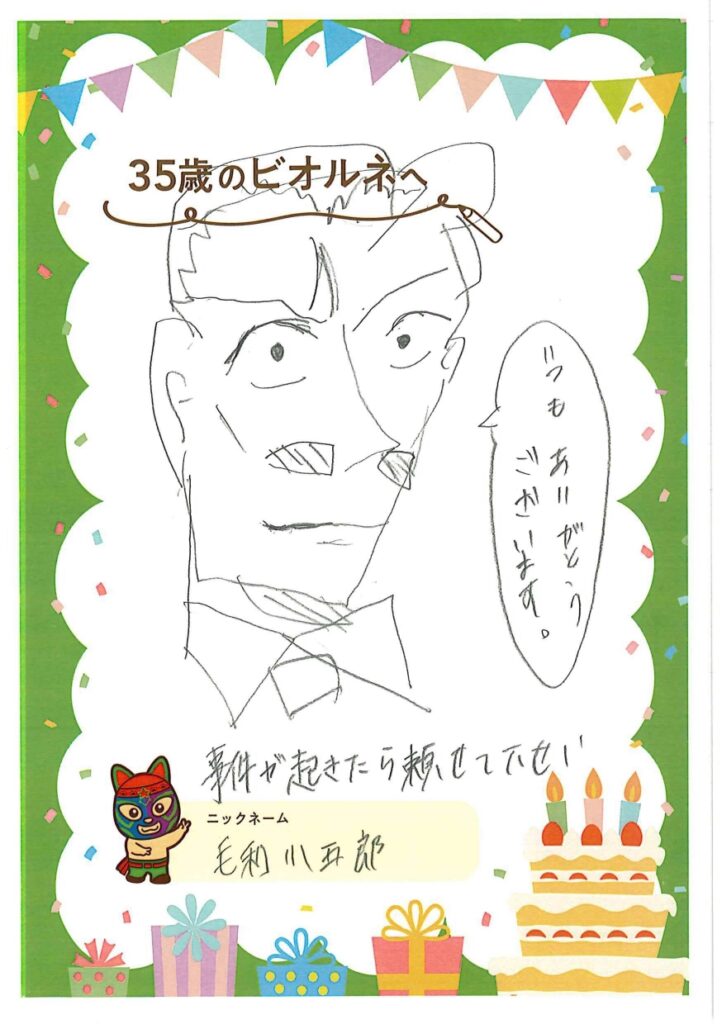 35歳のビオルネへ
いつも ありがとう
ございます。
事件が起きたら頼せて下せい
ニックネーム
毛利小五郎